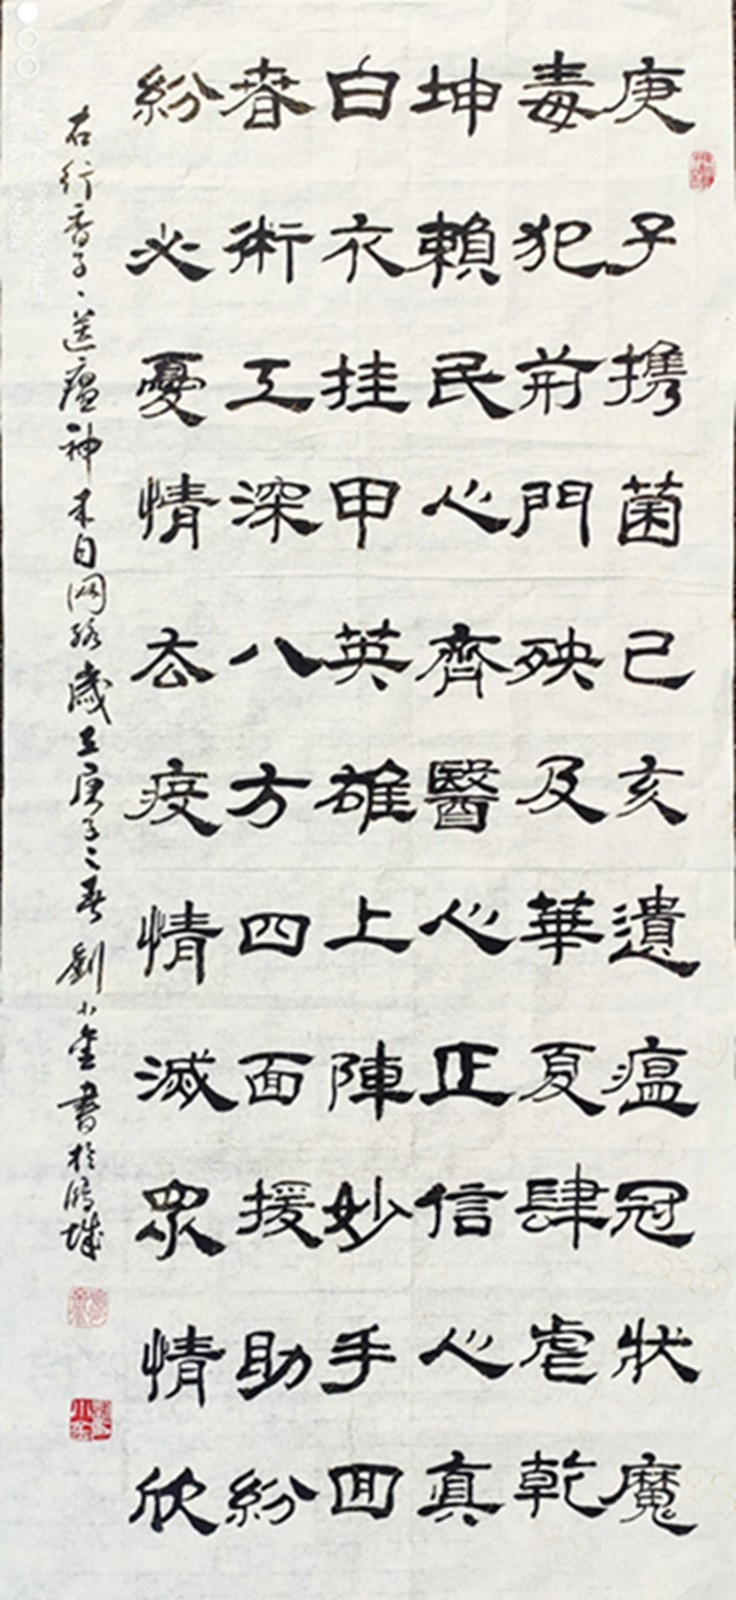 庚子携菌己亥遺瘟冠狀魔
毒犯荊門殃及華夏肆虐乾
坤賴民心齊醫心正信心真
白衣挂甲英雄上陣妙手囬
春術工深八方四面援助紛
紛必憂情去疫情滅眾情欣
右行香子、送瘟神来自网络歲在庚子之春劉小書於鹏城